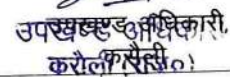 उपखण्ड अधिकारी,
करौली (राज०)